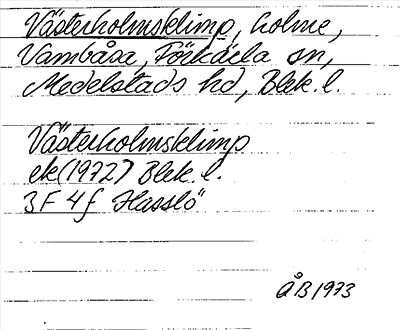 Västerholmsklimp, holme,
Vambåsa, Förkärla sn,
Medelstads hd, Blek. l.
Västerholmsklimp
ek(1972) Blek. l.
3F 4f Hasslö
ÅB 1973